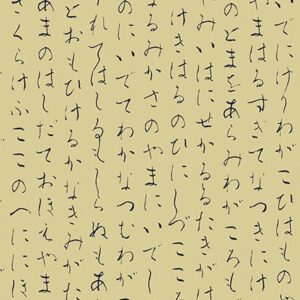 いでにけりわがこひはもの
やまはるすぎてなつきにけ
のとまをあらみわがころも
みいはにせかるるたきがは
けきはるのひにしづこころ
なるみかさのやまにいでし
のにいでてわかなつむわが
れてはしるもしらぬもあ
とおもひけるかなきみがた
あまのはしだておほえやま
さくらけふここのへににほ